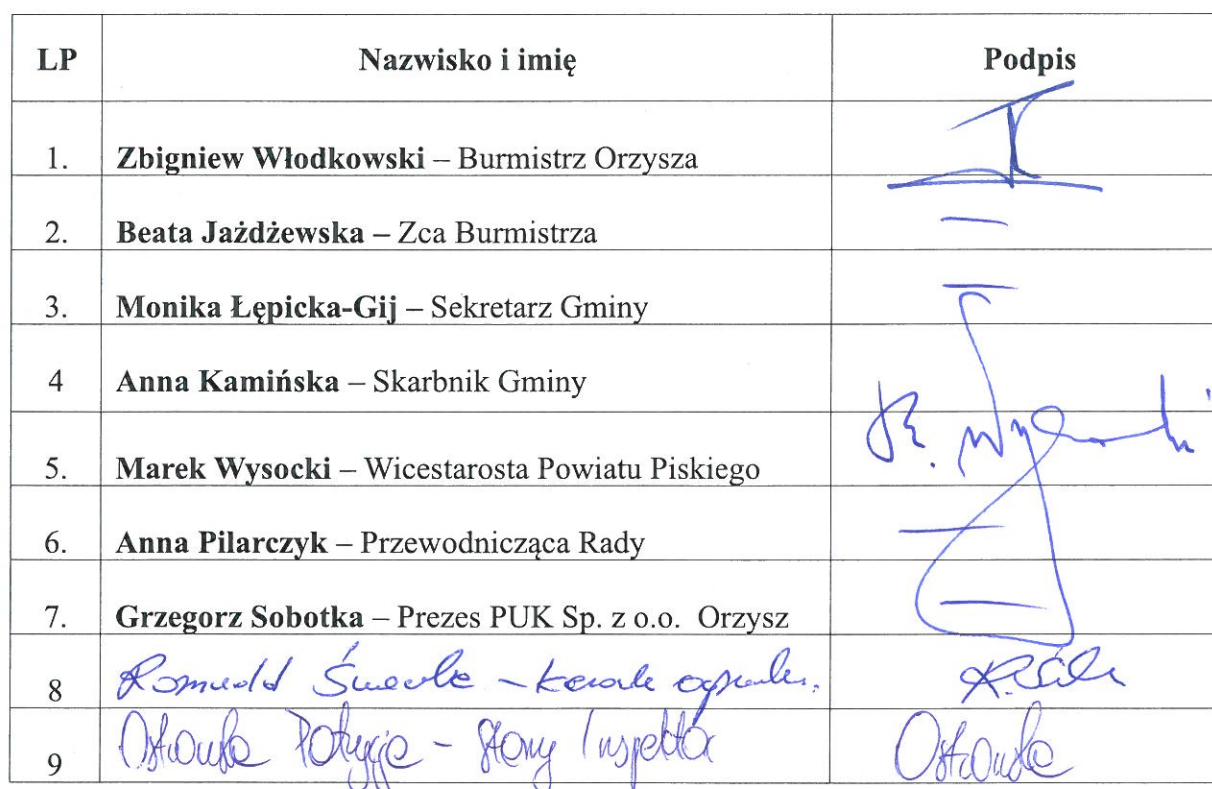 LP Nazwisko i imię Podpis
1. Zbigniew Włodkowski – Burmistrz Orzysza
2. Beata Jażdżewska – Zca Burmistrza —
3. Monika Łępicka-Gij – Sekretarz Gminy —
4 Anna Kamińska – Skarbnik Gminy
5. Marek Wysocki – Wicestarosta Powiatu Piskiego
6. Anna Pilarczyk – Przewodnicząca Rady —
7. Grzegorz Sobotka – Prezes PUK Sp. z o.o. Orzysz —
8 Romuald
9 Ostrowska Patrycja – Starszy Inspektor Ostrowska